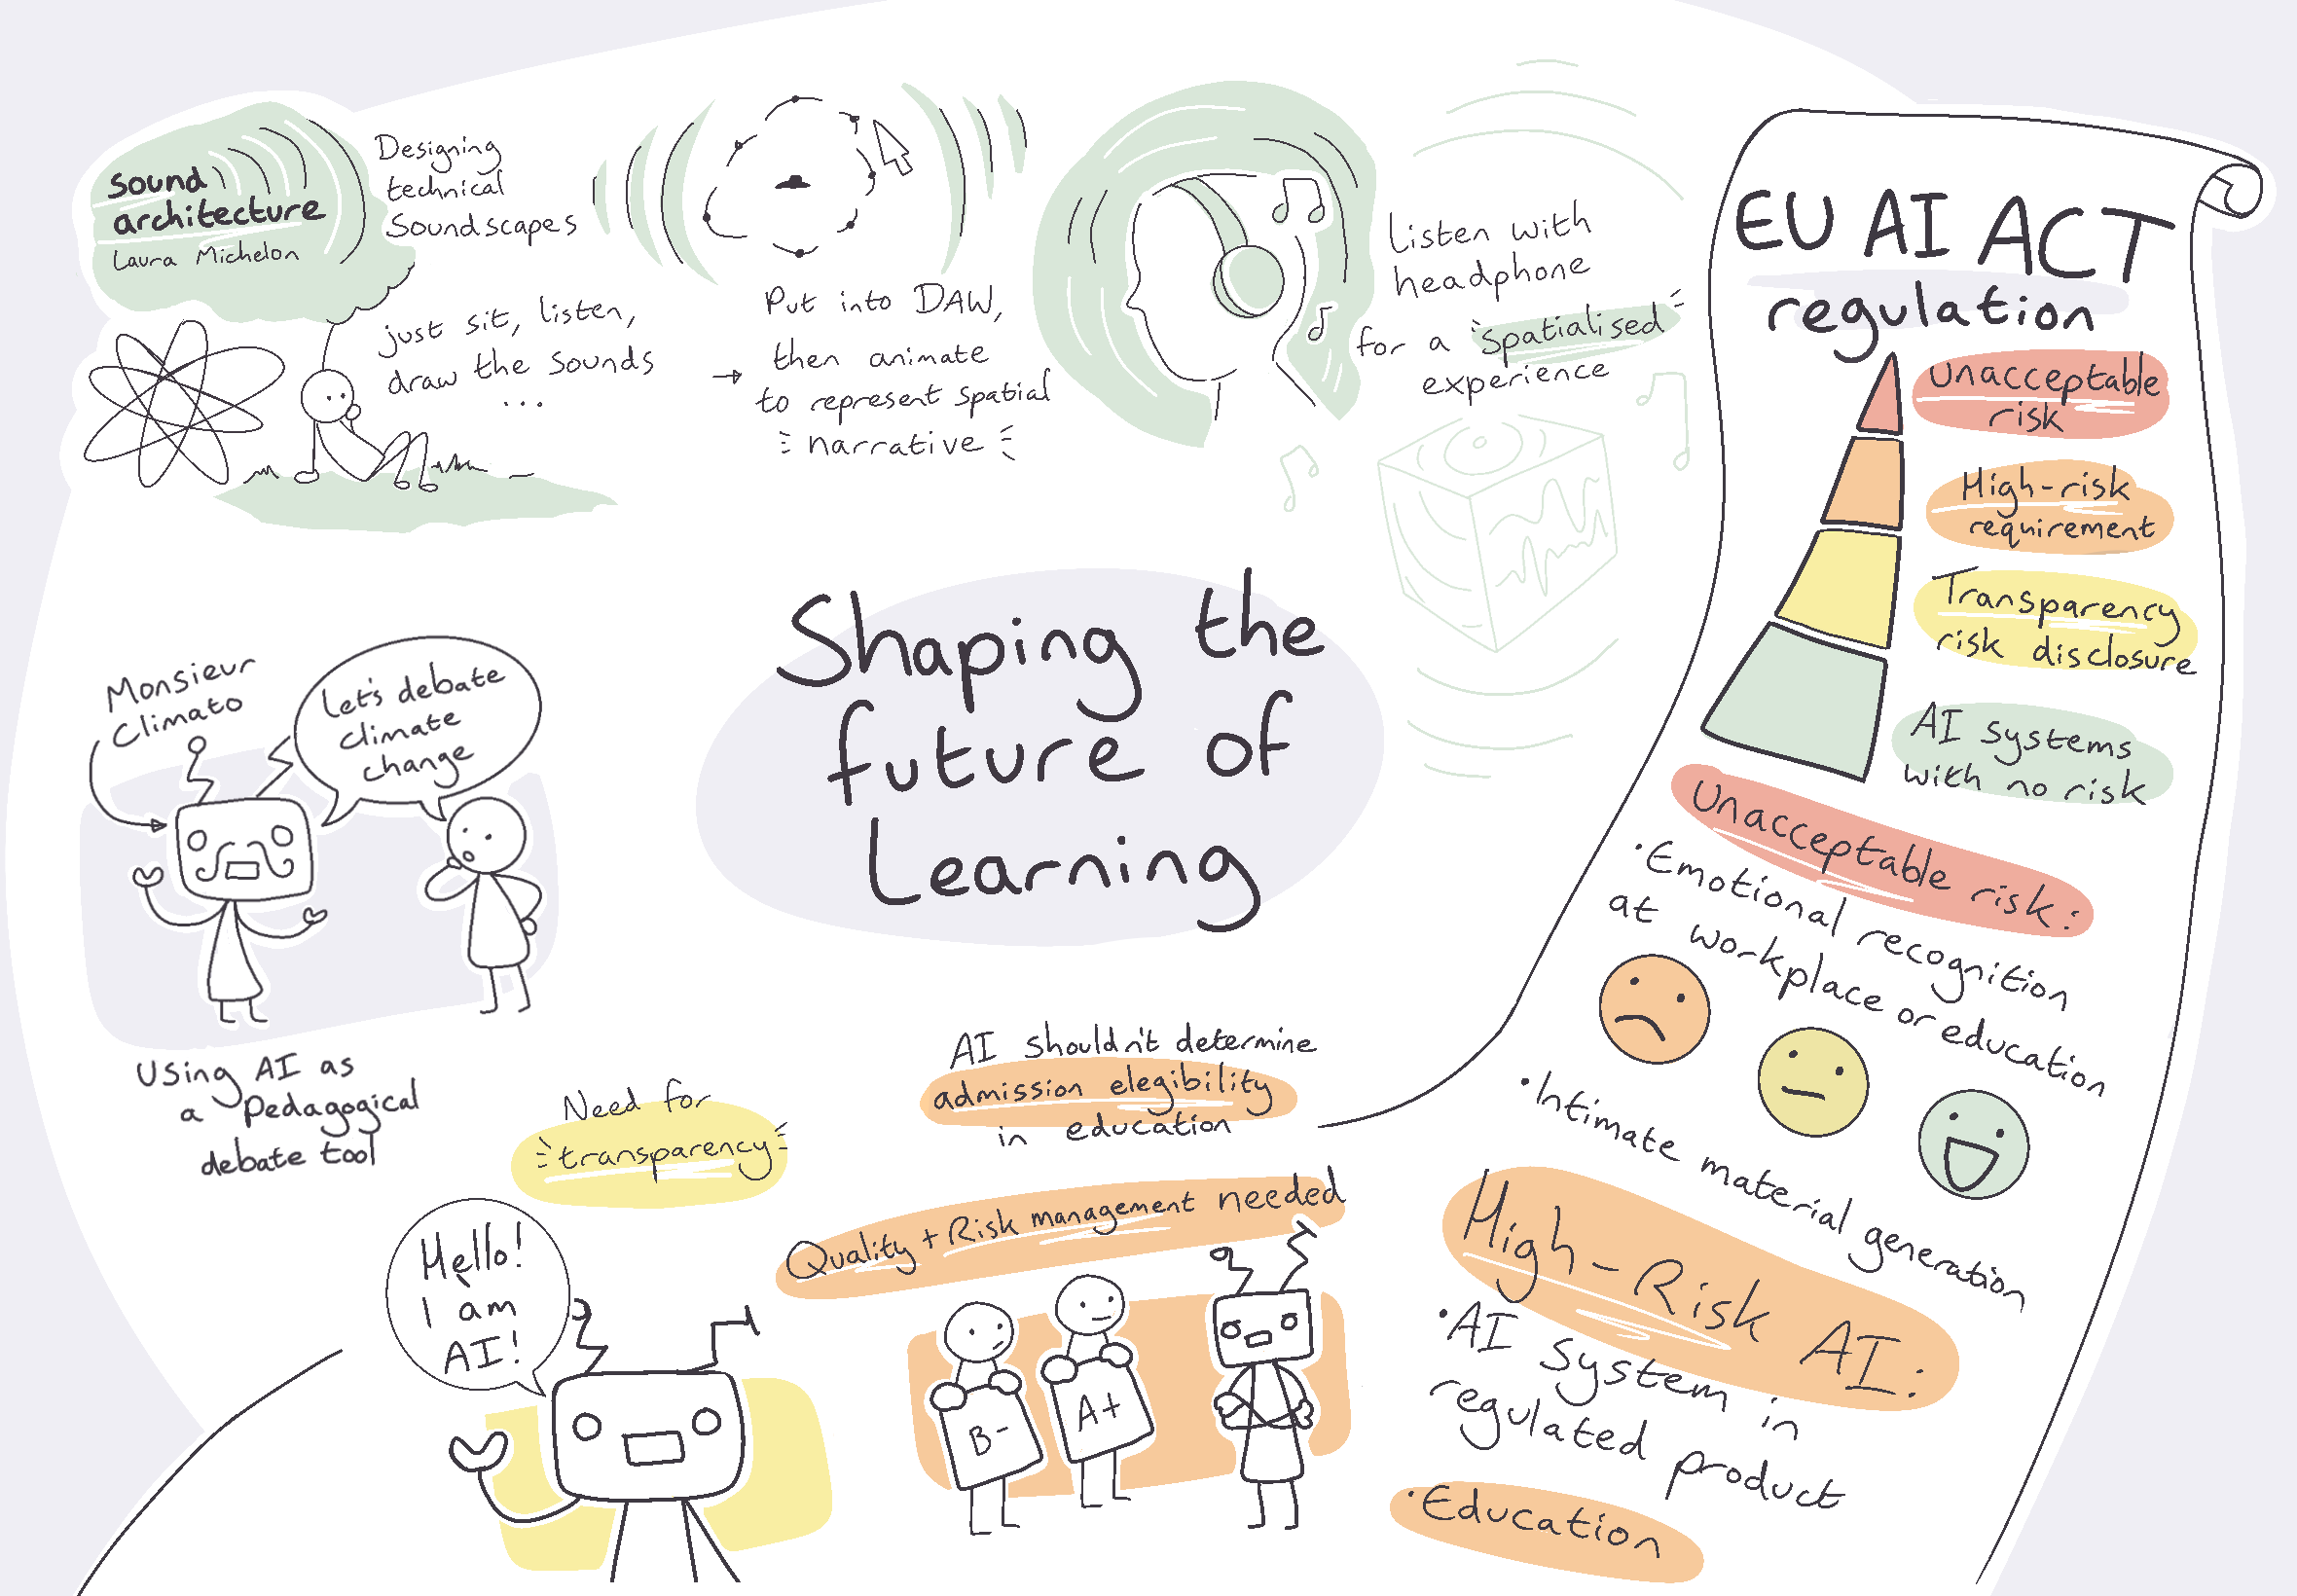 sound
architecture
Laura Michelon
Designing
technical
Soundscapes
just sit, listen,
draw the sounds
...
→ Put into DAW,
then animate
to represent spatial
narrative
Listen with
headphone
for a "spatialised"
experience
EU AI ACT
regulation
Unacceptable
risk
High-risk
requirement
Transparency
risk disclosure
AI systems
with no risk
Unacceptable risk:
• Emotional recognition
at workplace or education
• Intimate material generation
High-Risk AI:
• AI system in
regulated product
• Education
Shaping the
future of
Learning
Monsieur
Climato
Let's debate
climate
change
Using AI as
a Pedagogical
debate tool
Need for
transparency
Hello!
I am
AI!
AI shouldn't determine
admission elegibility
in education
Quality + Risk management needed
B-
A+